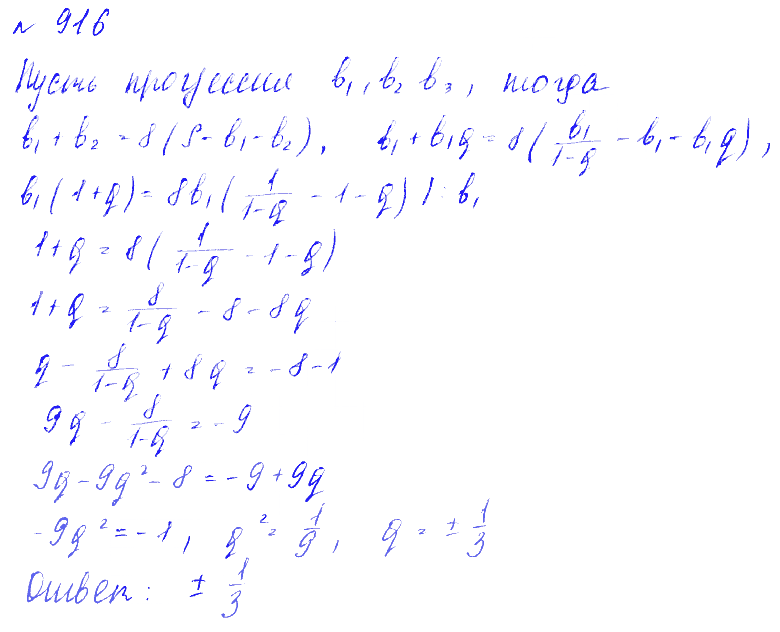 № 916
Пусть прогрессия b₁, b₂ b₃, тогда
b₁ + b₂ = 8(S - b₁ - b₂), b₁ + b₁q = 8(b₁/(1-q) - b₁ - b₁q),
b₁(1+q) = 8b₁(1/(1-q) - 1 - q) | : b₁
1+q = 8(1/(1-q) - 1 - q)
1+q = 8/(1-q) - 8 - 8q
q - 8/(1-q) + 8q = -8-1
9q - 8/(1-q) = -9
9q - 9q² - 8 = -9 + 9q
-9q² = -1, q² = 1/9, q = ± 1/3
Ответ: ± 1/3